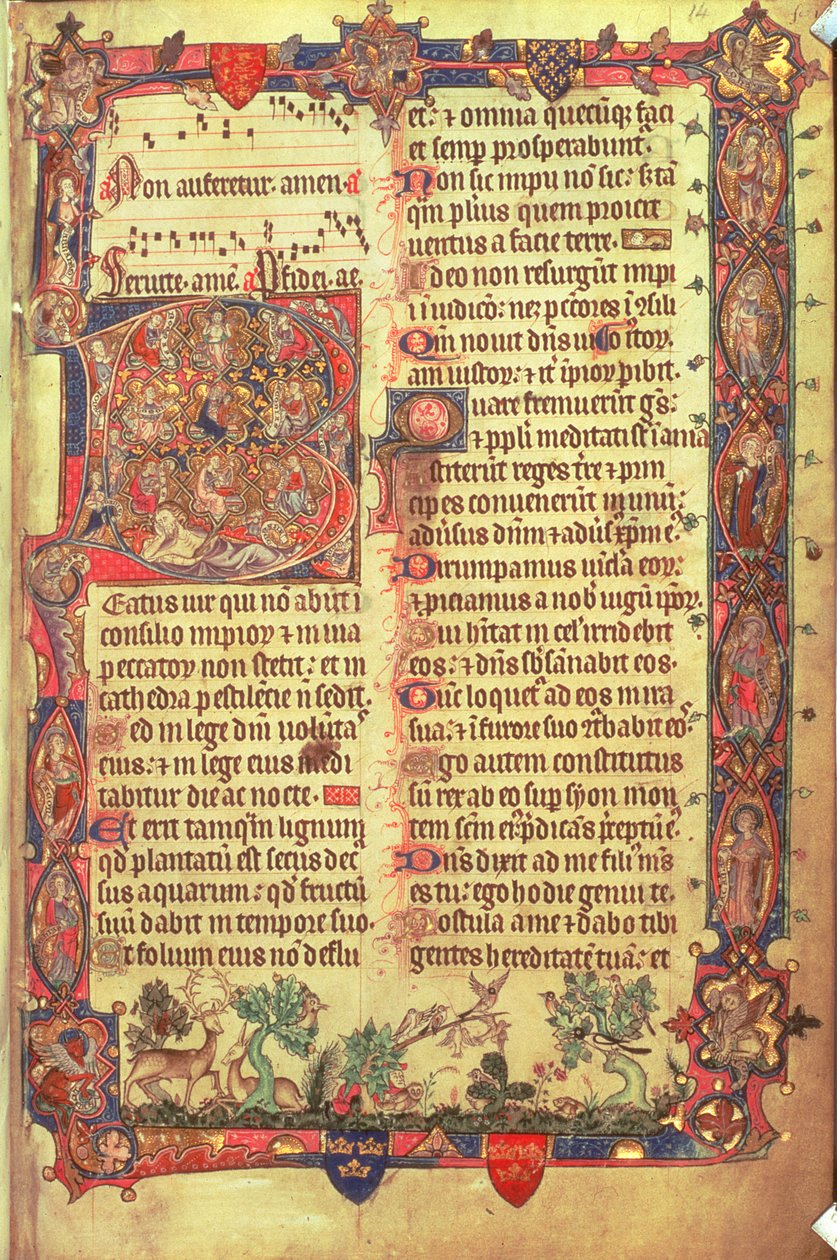 Non auferetur. amen. a
Seculte. amē. a Pfidei. ae.
Eatus uir qui nō abiit i
consilio impioꝝ ⁊ in uia
peccatoꝝ non stetit: et in
cathedra pestilēcie ñ sedit.
Sed in lege dñi uolūtaˢ
eius: ⁊ in lege eius medi
tabitur die ac nocte.
Et erit tamq̄m lignum
qd̄ plantatū est secus decˢ
sus aquarum: qd̄ fructū
suū dabit in tempore suo.
Et folium eius nō deflu
14
et: ⁊ omnia quecūqꝫ faci
et semꝑ prosperabunt᷑.
Non sic impii nō sic: sꝫ tā
q̄m pl̓uis quem proicit
uentus a facie terre.
Ideo non resurgūt impi
i ī iudico: neqꝫ pctōres ī ꝯsili
Qm̄ nouit dñs uiā
o iustoꝝ.
am iustoꝝ: ⁊ it̓ īpioꝝ ꝑibit.
Quare fremuerūt gn̄s:
⁊ pplī meditati sūt inania
Astiterūt reges tr̄e ⁊ prin
cipes conuenerūt in unū:
adūsus dñm ⁊ adūs᷑ xp̄m eˢ.
Dirumpamus uīcla eoꝝ:
⁊ ꝓiciamus a nob̓ iugū ip̄oꝝ.
Qui hītat in cel᷑ irridebit
eos: ⁊ dñs sb̓sānabit eos.
Tūc loquet᷑ ad eos in ira
sua: ⁊ ī furore suo ꝯt̓babit eoˢ.
Ego autem constitutus
sū rex ab eo suꝑ syon mon
tem scm̄ eiˢ: p̄dicās p̄ceptū eˢ.
Dn̄s dixit ad me filiˢ mˢ
es tu: ego hodie genui te.
Postula a me ⁊ dabo tibi
gentes hereditatē tuā: et